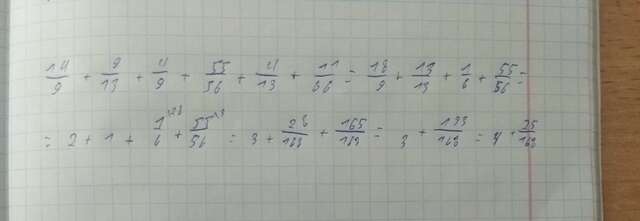 14/9 + 9/13 + 4/9 + 55/56 + 4/13 + 11/56 = 18/9 + 13/13 + 1/6 + 55/56 =
= 2 + 1 + 1/6 + 55/56 = 3 + 28/168 + 165/168 = 3 + 193/168 = 4 + 25/168